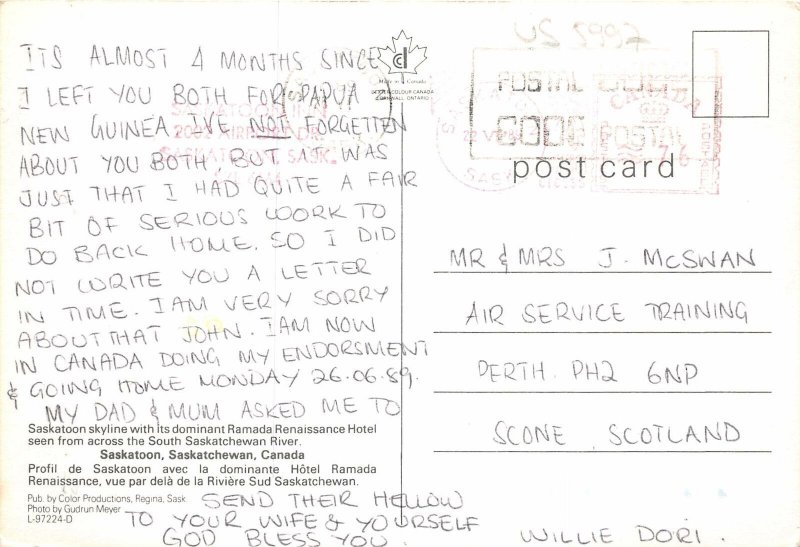 ITS ALMOST 4 MONTHS SINCE
I LEFT YOU BOTH FOR PAPUA
NEW GUINEA. I'VE NOT FORGETTEN
ABOUT YOU BOTH, BUT IT WAS
JUST THAT I HAD QUITE A FAIR
BIT OF SERIOUS WORK TO
DO BACK HOME. SO I DID
NOT WRITE YOU A LETTER
IN TIME. I AM VERY SORRY
ABOUT THAT JOHN. I AM NOW
IN CANADA DOING MY ENDORSMENT
& GOING HOME MONDAY 26.06.89.
MY DAD & MUM ASKED ME TO
Saskatoon skyline with its dominant Ramada Renaissance Hotel
seen from across the South Saskatchewan River.
Saskatoon, Saskatchewan, Canada
Profil de Saskatoon avec la dominante Hôtel Ramada
Renaissance, vue par delà de la Rivière Sud Saskatchewan.
Pub. by Color Productions, Regina, Sask
Photo by Gudrun Meyer
L-97224-D
SEND THEIR HELLOW
TO YOUR WIFE & YOURSELF
GOD BLESS YOU.
WILLIE DORI.
POSTAL CODE
CODE POSTAL
CANADA
post card
MR & MRS J. McSWAN
AIR SERVICE TRAINING
PERTH. PH2 6NP
SCONE, SCOTLAND